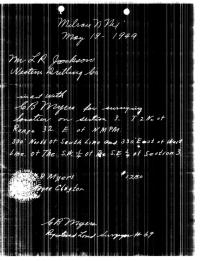 Melrose N Mex
May 18 - 1949
Mr L R Jackson
Western Drilling Co
with
C B Myers for surveying
location on section 3. T 2 N. of
Range 32 E of N.M.P.M
330 North of South line and 330 East of West
line. of The S.W. ¼ of The S.E ¼ of Section 3.
B Myers
Clayton
C B Myers
Registered Land Surveyor # 69